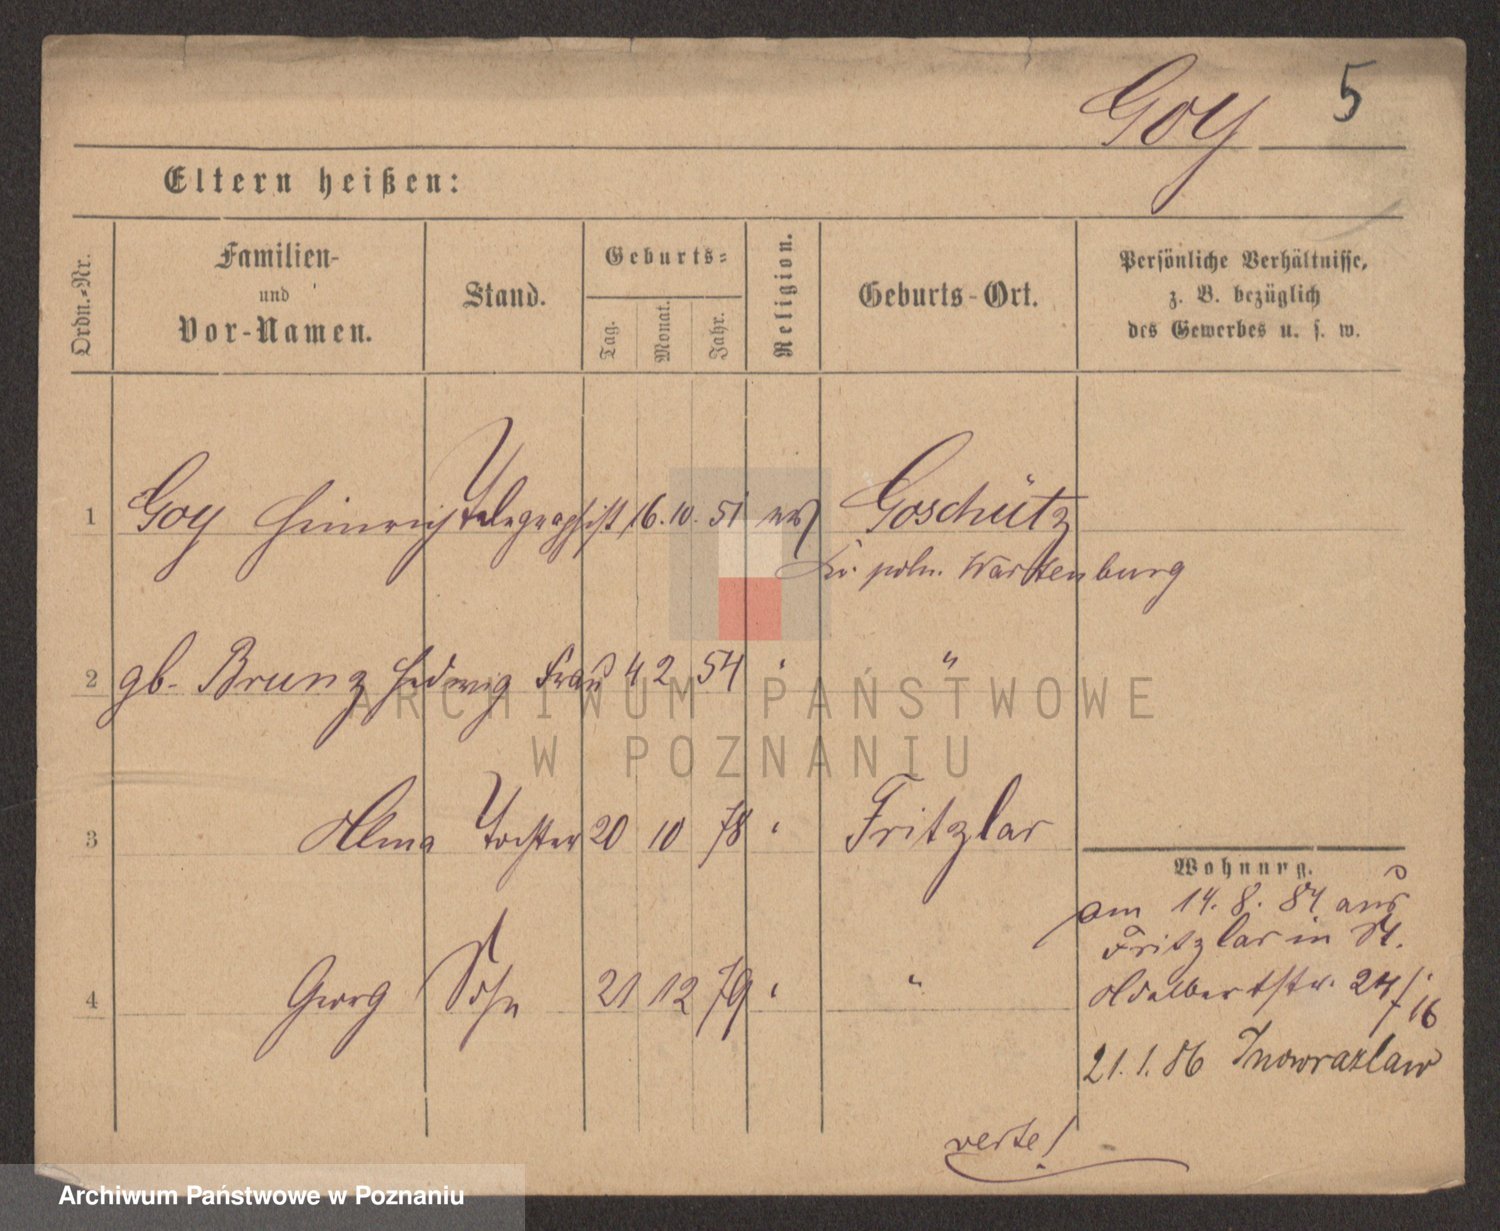 Goy 5
Eltern heißen:
Ordn.-Nr.
Familien-
und
Vor-Namen.
Stand.
Geburts-
Tag.
Monat.
Jahr.
Religion.
Geburts-Ort.
Persönliche Verhältnisse,
z. B. bezüglich
des Gewerbes u. s. w.
1 Goy Heinrich Telegraphist 16. 10. 51 Goschütz
Kr. poln. Wartenburg
2 gb. Brunz Hedwig Frau 4 2 54 " "
3 Alma Tochter 20 10 78 " Fritzlar
4 Georg Sohn 21 12 79 " "
Wohnung.
am 14. 8. 84 aus
Fritzlar in St.
Adalbertstr. 24/16
21. 1. 86 Inowrazlaw
verte!
ARCHIWUM PAŃSTWOWE
W POZNANIU
Archiwum Państwowe w Poznaniu